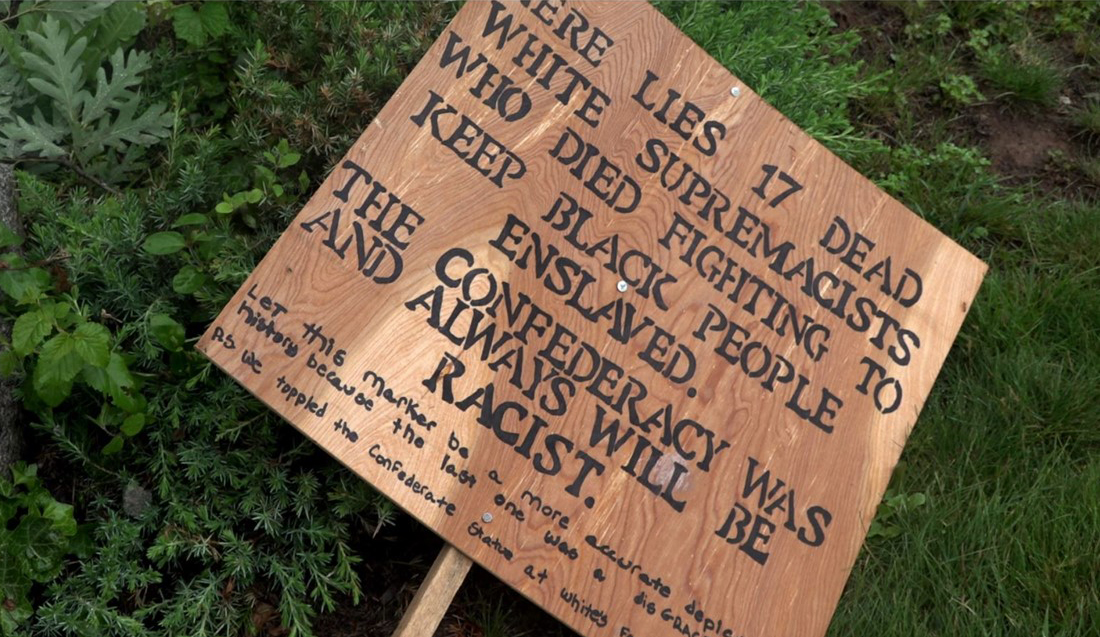 HERE LIES 17 DEAD
WHITE SUPREMACISTS
WHO DIED FIGHTING TO
KEEP BLACK PEOPLE
ENSLAVED.
THE CONFEDERACY WAS
AND ALWAYS WILL BE
RACIST.
LET this marker be a more accurate
history because the last one was a
Ps we toppled the Confederate Statue at whitey